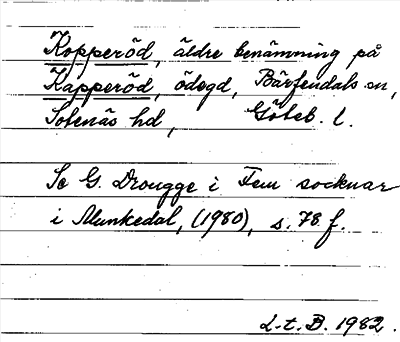 Kopperöd, äldre benämning på
Kapperöd, ödegd, Bärfendals sn,
Sotenäs hd, Göteb. l.
Se G. Drougge i Fem socknar
i Munkedal, (1980), s. 78 f.
L.t.B. 1982.